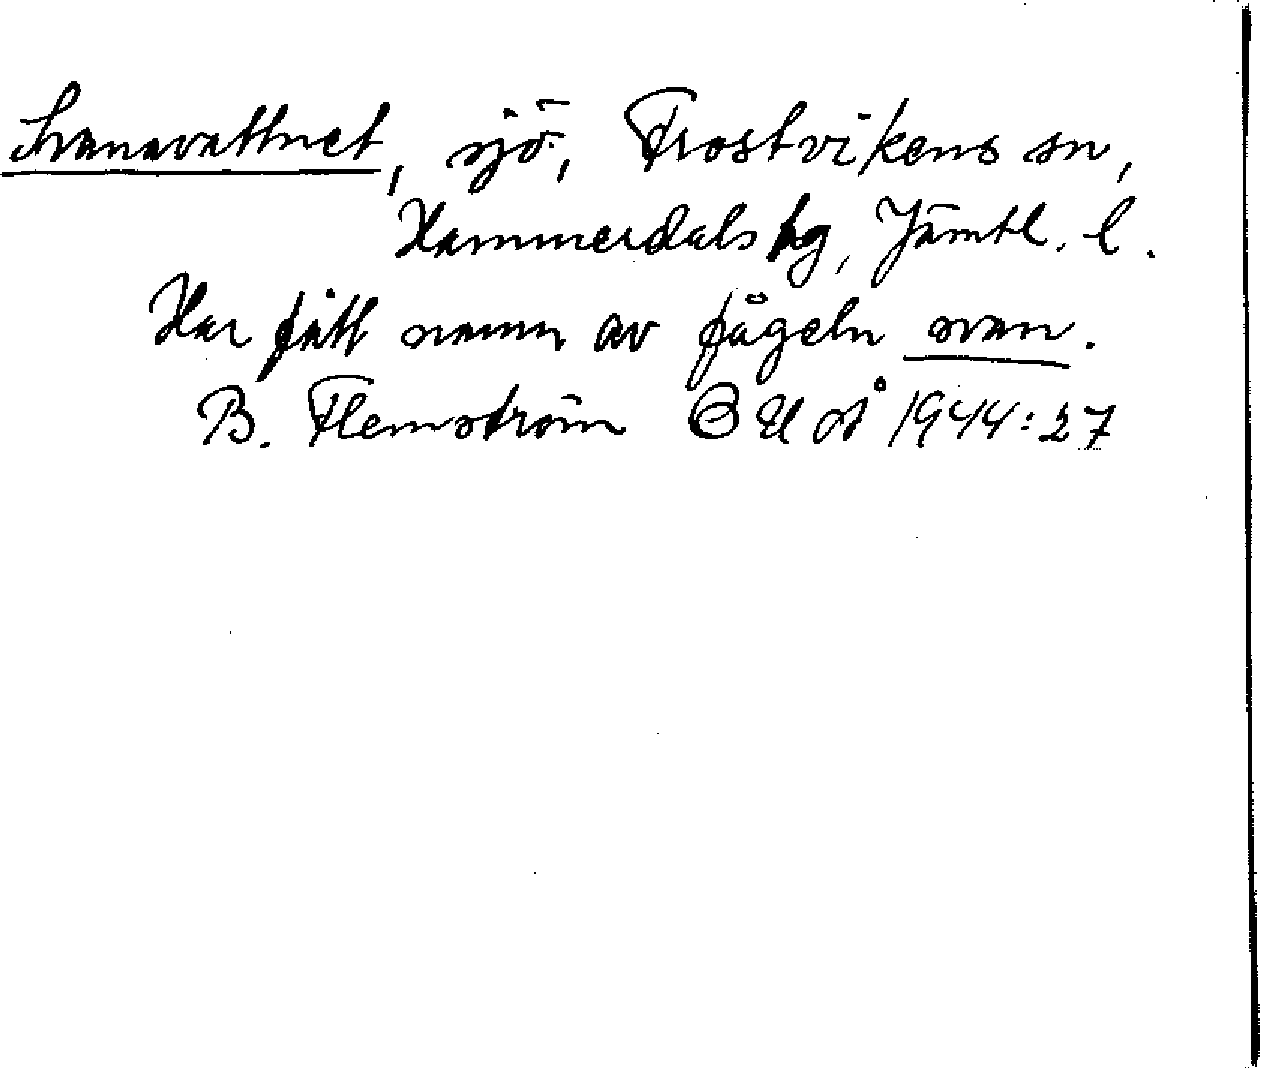 Svanavattnet, sjö, Frostvikens sn,
Hammerdals hg, Jämtl. l.
Har fått namn av fågeln svan.
B. Flemström OUÅ 1944:27